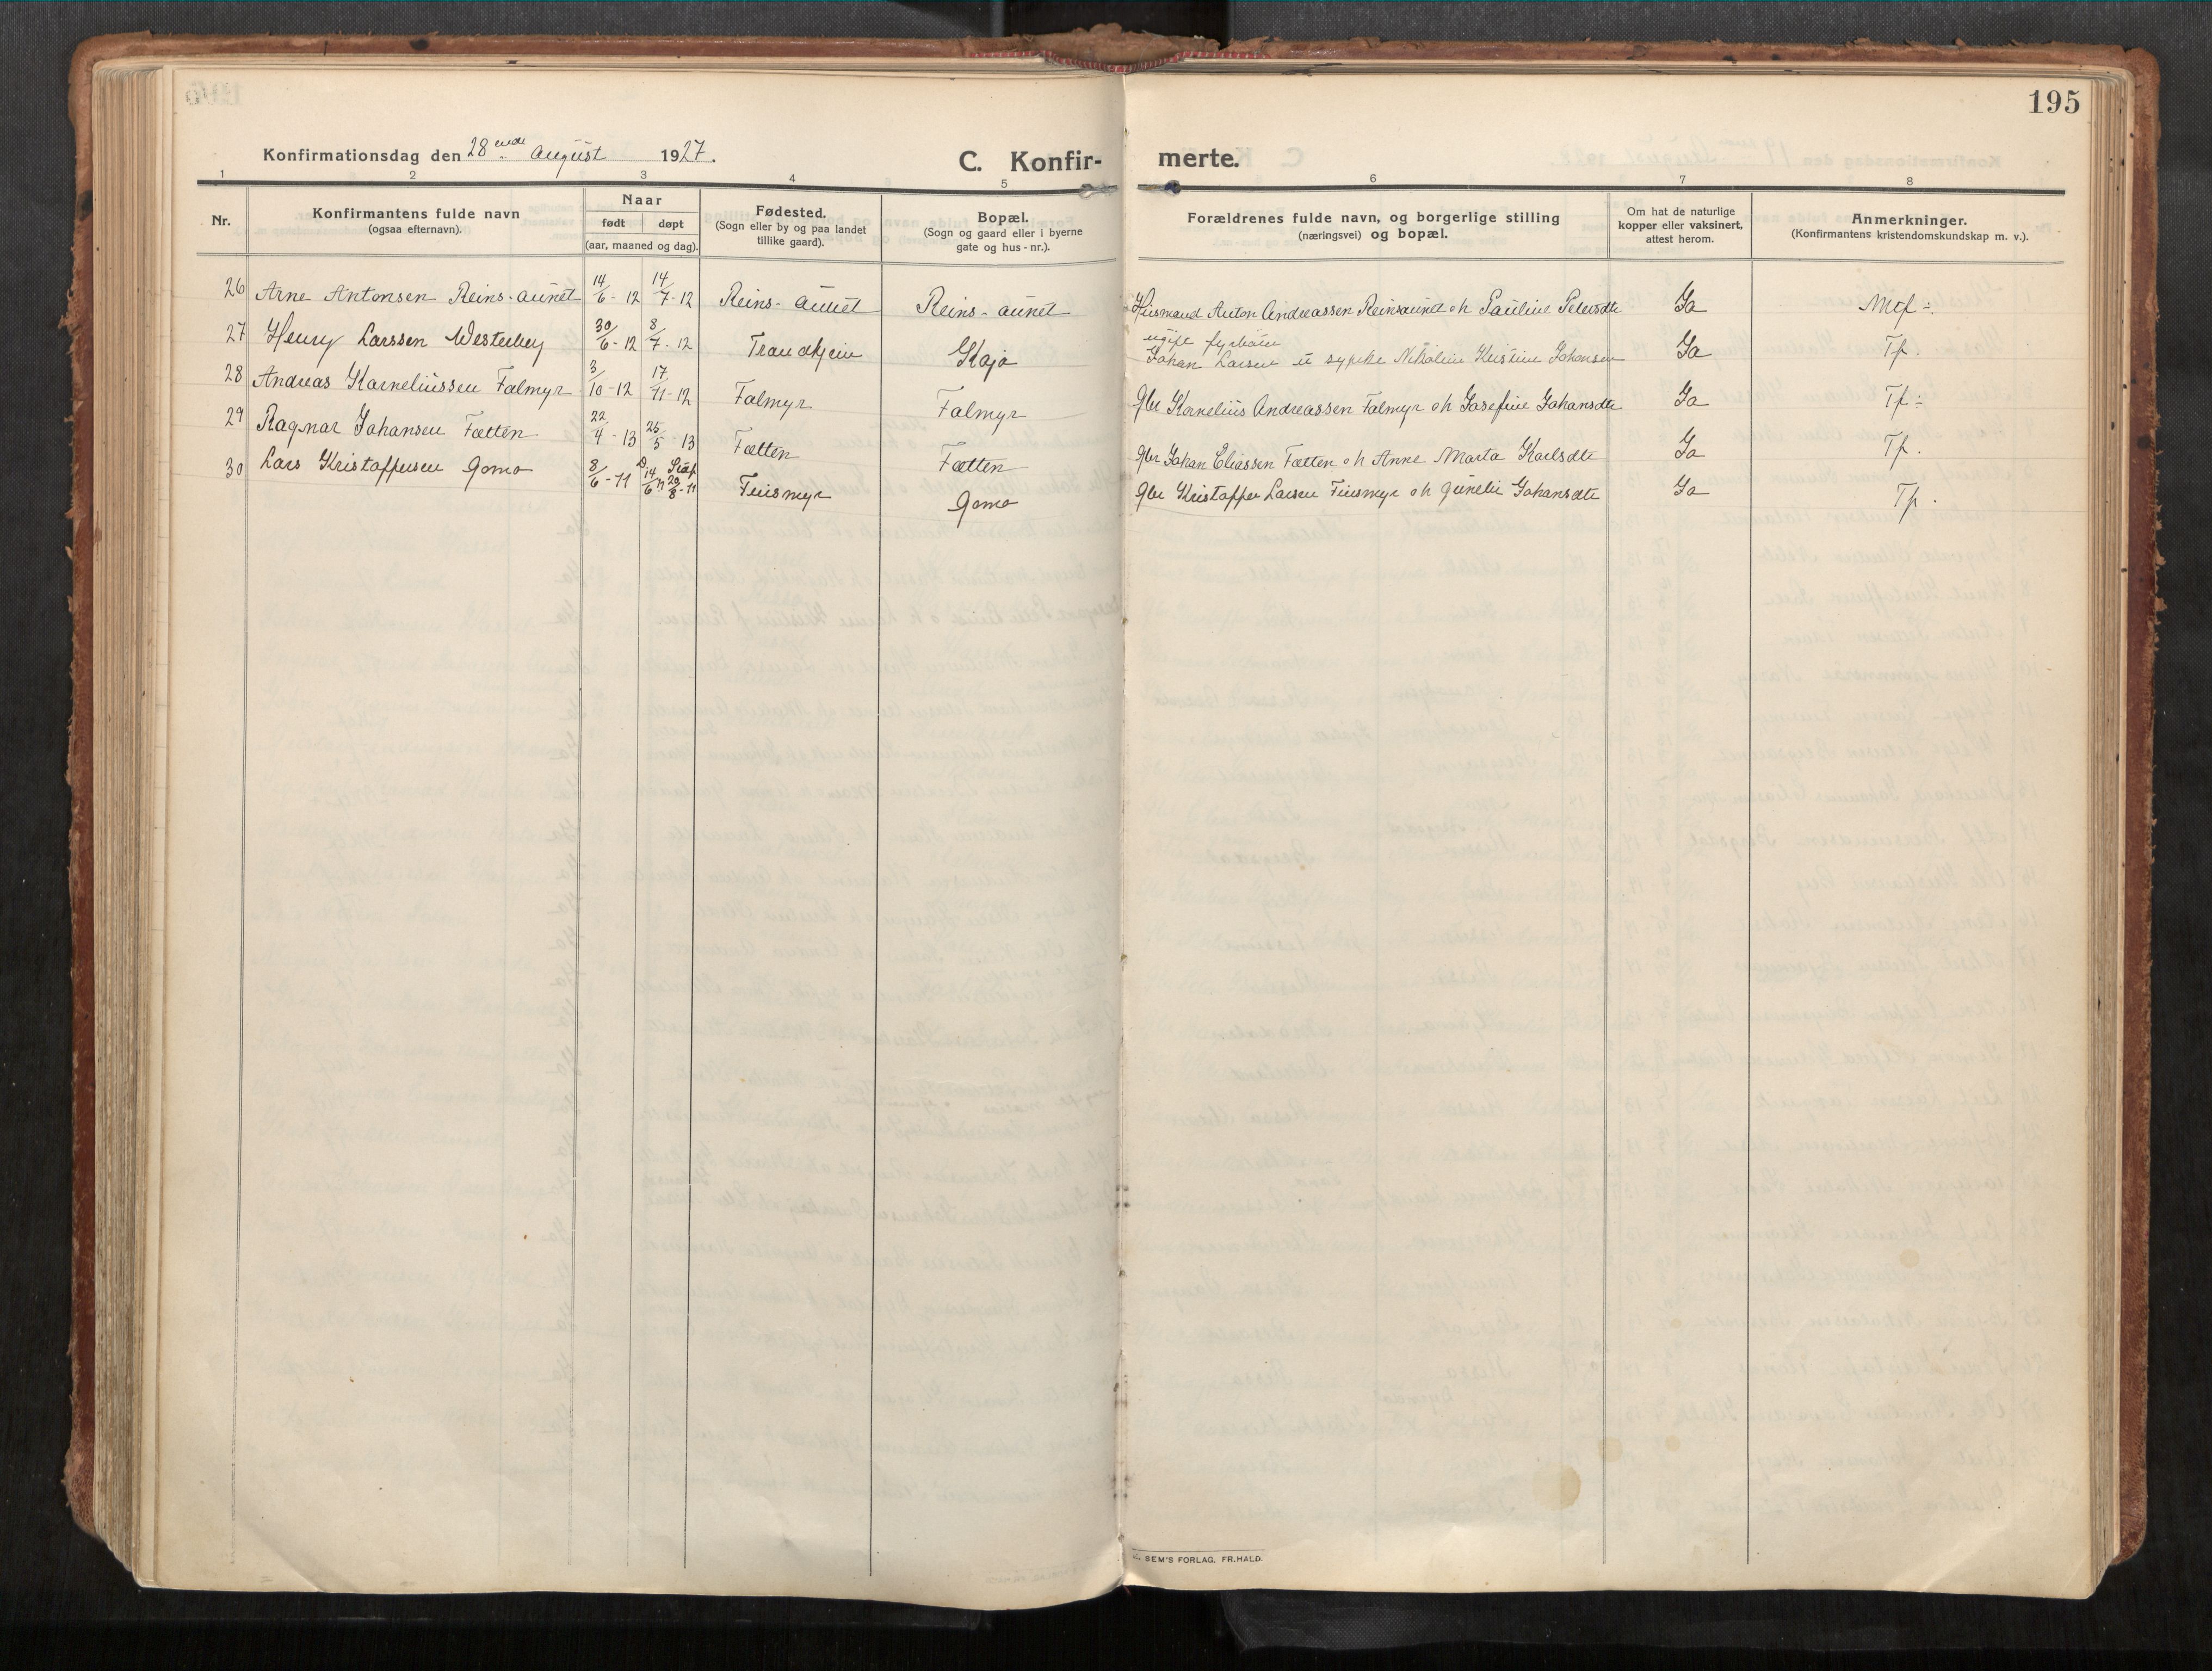 195
Konfirmationsdag den 28 ende August 1927.
C. Konfir- merte.
1 2 3 4 5 6 7 8
Nr.
Konfirmantens fulde navn
(ogsaa efternavn).
Naar
født døpt
(aar, maaned og dag).
Fødested.
(Sogn eller by og paa landet
tillike gaard).
Bopæl.
(Sogn og gaard eller i byerne
gate og hus-nr.).
Forældrenes fulde navn, og borgerlige stilling
(næringsvei) og bopæl.
Om hat de naturlige
kopper eller vaksinert,
attest herom.
Anmerkninger.
(Konfirmantens kristendomskundskap m. v.).
26 Arne Antonsen Reins-aunet 14/6-12 14/7-12 Reins-aunet Reins-aunet Husmand Anton Andreassen Reinsaunet oh Pauline Petersdtr Ja
ugift fyrbøter
27 Henry Larssen Westerbey 30/6-12 8/7-12 Trondhjem Johan Larsen u sypike Nikoline Kristine Johansen Ja Tf.
28 Andreas Korneliussen Falmyr 3/10-12 17/11-12 Falmyr Falmyr gbr Kornelius Andreassen Falmyr oh Josefine Johansdtr Ja Tf:
29 Ragnar Johansen Fætten 22/4-13 25/5-13 Fætten Fætten gbr Johan Eliassen Fætten oh Anne Marta Karlsdtr Ja Tf.
30 Lars Kristoffersen Gomo 8/6-11 14/6 11 20/8-11 Finsmyr Gomo gbr Kristoffer Larsen Finsmyr oh Gunelie Johansdtr Ja Tf.
SEM'S FORLAG. FR. HALD.